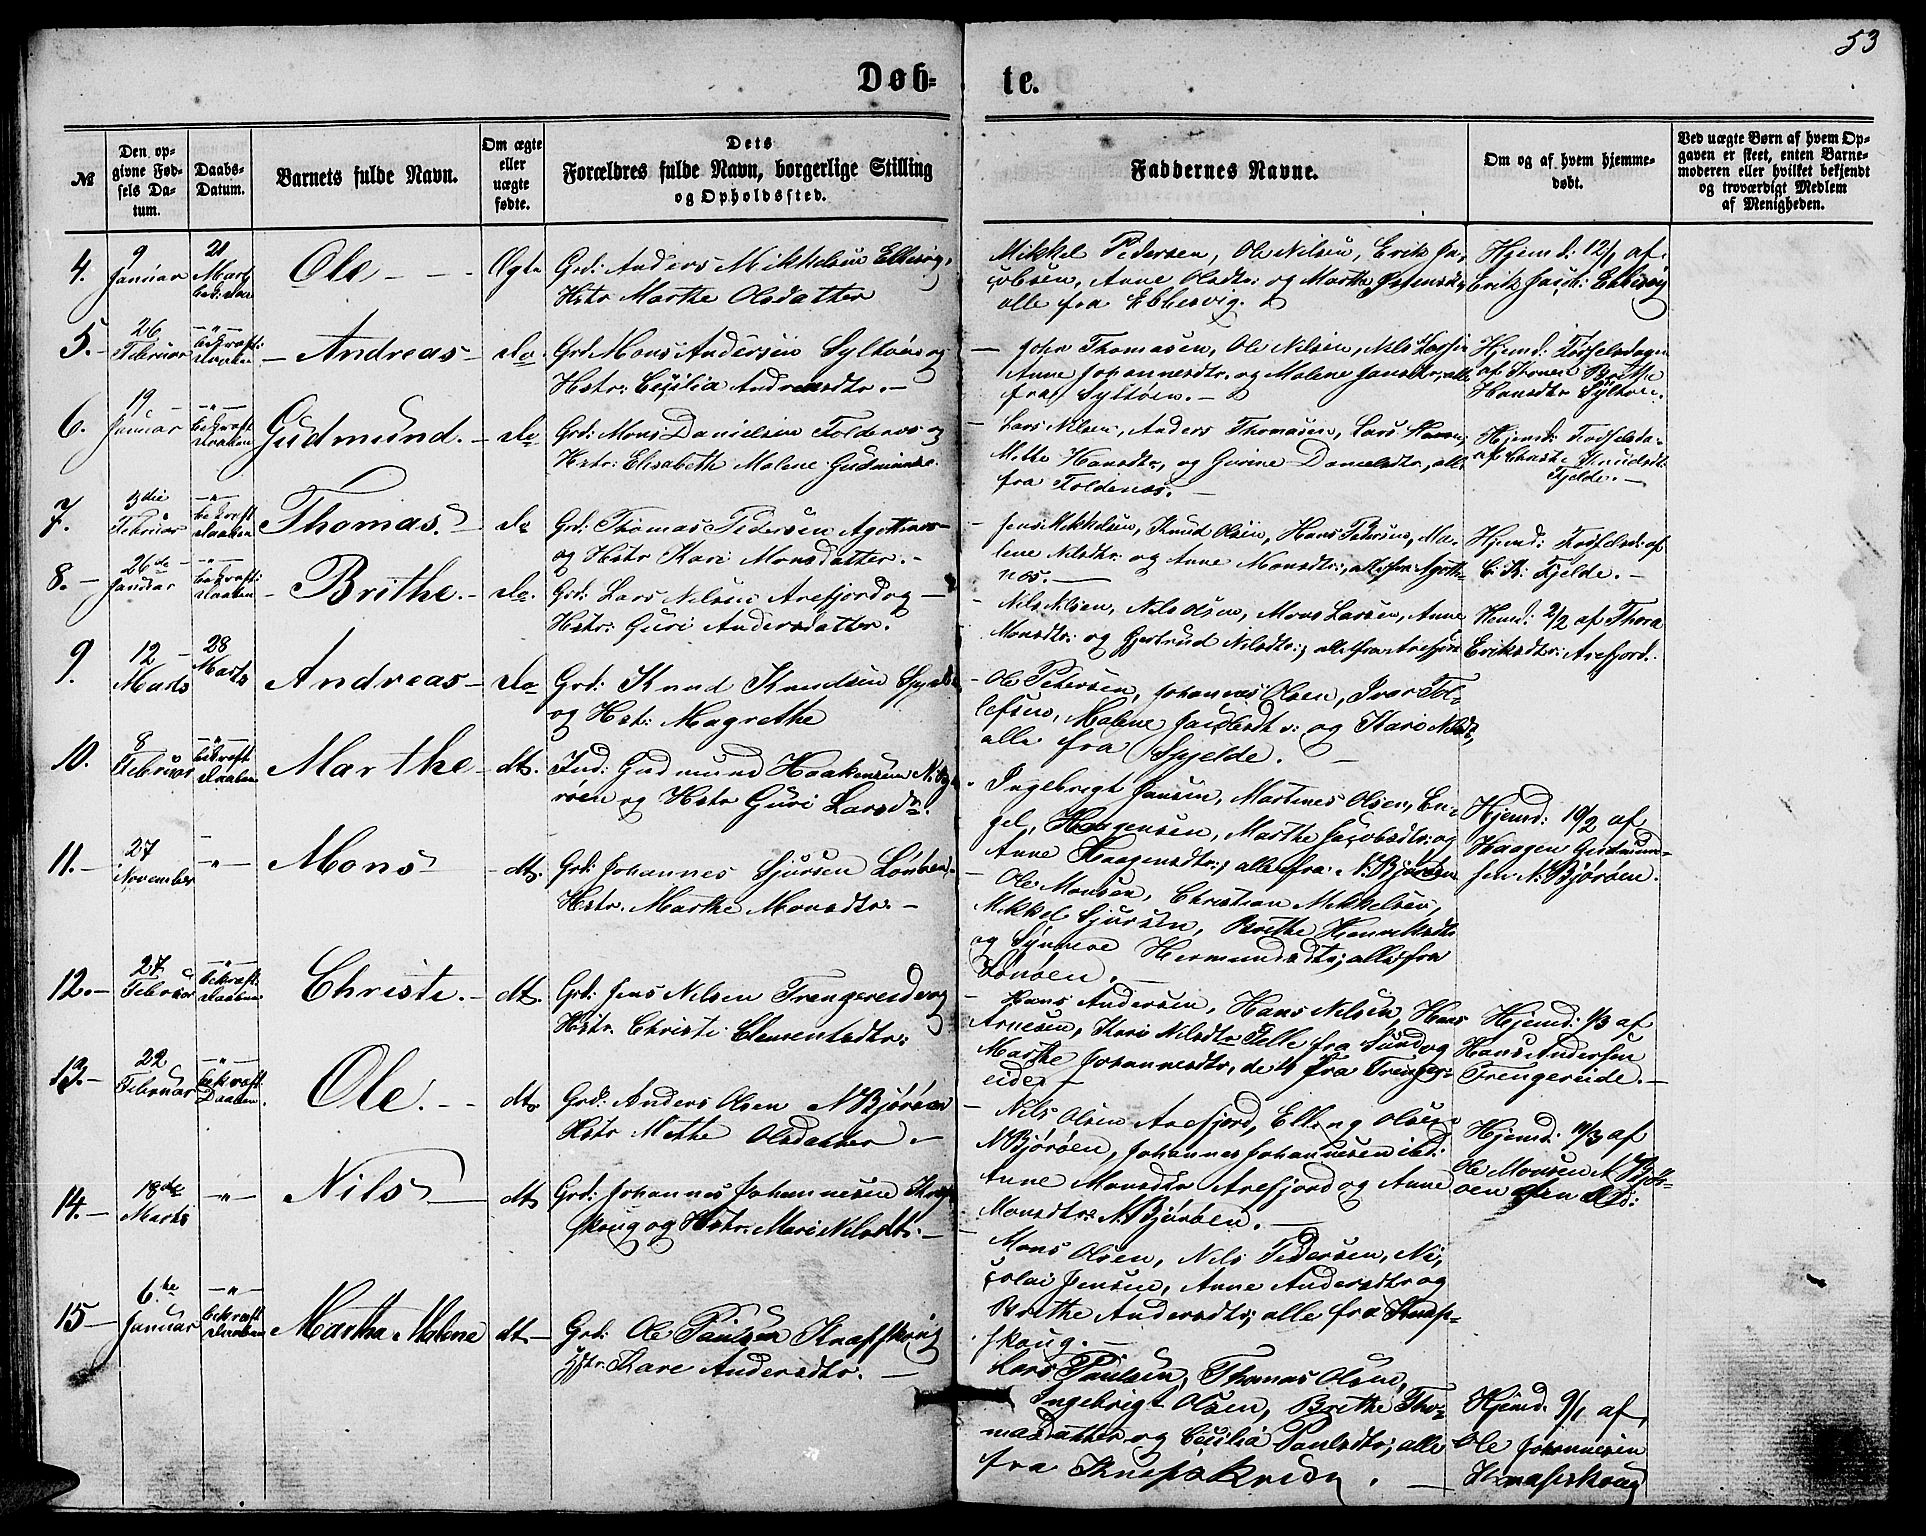 53
Døb-
te.
№
Den op-
givne Fød-
sels Da-
tum.
Daabs-
Datum.
Barnets fulde Navn.
Om ægte
eller
uægte
fødte.
Dets
Forældres fulde Navn, borgerlige Stilling
og Opholdssted.
Faddernes Navne.
Om og af hvem hjemme-
døbt.
Ved uægte Børn af hvem Op-
gaven er skeet, enten Barne-
moderen eller hvilket bekjendt
og troværdigt Medlem
af Menigheden.
4.
9
Januar
21
Marts
Ole
Ægte
Grd: Anders Mikkelsen Ebbesvig,
Hstr Marthe Olsdatter
Mikkel Pedersen, Ole Nilsen, Erik Ja-
cobsen, Anne Olsdtr: og Marthe
alle fra Ebbesvig.
Hjemd: 12/1 af
Erik Jacob: Ebbesvig
5.
26
Februar
bekræft:
Daaben
Andreas
do.
Grd Mons Andersen Syltøen og
Hstr: Cecilia Andreasdtr.
John Thomasen, Ole Nilsen, Nils Larsen
Anne Johannesdtr. og Malene Jansdtr, alle
fra Syltøen.
Hjemd: Fødselsdagen
af
Hansdtr Syltøen.
6.
19
Januar
bekræft
Daaben
Gudmund.
do
Grd: Mons Danielsen Foldenes og
Hstr: Elisabeth Malene
Lars Nilsen, Anders Thomasen, Lars
Mette Hansdtr, og Gurine Danielsdtr, alle
fra Foldenæs.
Hjemd: Fødselsda-
af Christi Knudsdt
Fjelde.
7.
3die
Februar
bekræft
Daaben
Thomas.
do
Grd: Thomas Pedersen Agotnes
og Hstr Kari Monsdatter.
Jens Mikkelsen, Knud Olsen, Hans Pedersen, Ma-
lene Nilsdtr. og Anne Monsdtr:, alle fra Agott-
nes.
Hjemd: Fødselsd: af
Fjelde.
8.
26de
Januar
bekræft:
Daaben
Brithe.
do.
Grd: Lars Nilsen Arefjord og
Hstr: Guri Andersdatter.
Nils Nilsen, Nils Olsen, Mons Larsen, Anne
Monsdtr: og Gjertrud Nilsdtr:, alle fra Arefjord
Hemd: 2/2 af Thora
Eriksdtr: Arefjord.
9.
12
Marts
28
Marts
Andreas
do
Grd: Knud Knudsen
og Hstr: Magrethe
Ole Petersen, Johannes Olsen, Ivar Tol-
lefsen, Malene og Kari Nilsdt,
alle fra Spjelde.
10.
8
Februar
bekræft
Daaben
Marthe
dto.
Ind: Gudmund Haakensen N. Bjo-
røen og Hstr Guri Larsdtr.
Ingebrigt Jansen, Martines Olsen, En-
gel, Haagensen, Marthe Jacobsdtr: og
Anne Haagensdtr:, alle fra N. Bjørøen
Hjemd: 10/2 af
Haagen Gudmun-
sen N. Bjørøen.
11.
27
November
Mons
dto.
Grd: Johannes Sjursen Lønøen.
Hstr. Marthe Monsdtr.
Ole Monsen, Christian Mikkelsen,
Mikkel Sjursen, Brithe Henriksdtr
og Synneve Hermundsdtr, alle fra
Lønøen.
12.
27
Februar
bekræft
Daaben
Christi.
dto.
Grd: Jens Nilsen Trengereide og
Hstr. Christi Clemensdtr:
Hans Andersen, Hans Nilsen, Hans
Arnesen, Kari Nilsdtr fra Sund og
Marthe Johannesdtr, fra Trenger-
eide.
Hjemd: 1/3 af
Hans Andersen
Trengereide.
13.
22
Februar
bekræft
Daaben.
Ole.
dto
Grd: Anders Olsen N Bjørøen
Hstr Mette Olsdatter.
Nils Olsen Arefjord, Elling Olsen
N Bjørøen, Johannes Johannesen ibd.
Anne Monsdtr Arefjord og Anne
Monsdtr: N. Bjørøen.
Hjemd: 11/3 af
Ole Monsen N Bjør-
øen
14.
18de
Marts
Nils
dto
Grd: Johannes Johannesen Knap-
skoug og Hstr. Mari Nilsdt.
Mons Olsen, Nils Pedersen, Ni-
colai Jensen, Anne Andersdtr og
Brithe Andersdtr, alle fra Knap-
skoug.
15
6.te
Januar
bekræft
Daaben
Martha Malene
dt
Grd: Ole Paulsen Knapskoug
Hstr. Kare Andersdtr.
Lars Paulsen, Thomas Olsen,
Ingebrigt Olsen, Brithe Tho-
masdatter og Cecilia Paulsdtr, alle
fra
Hjemd. 9/1 af
Ole Johannesen
Knapskoug